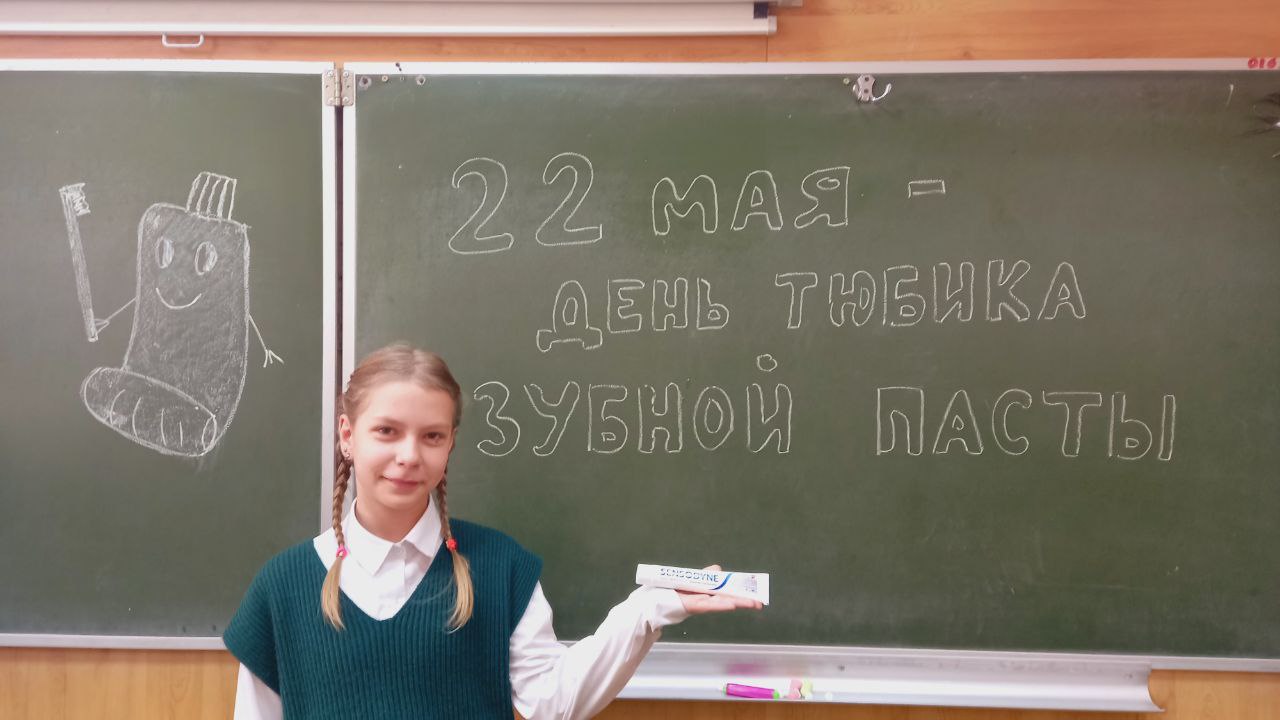 016
22 МАЯ -
ДЕНЬ ТЮБИКА
ЗУБНОЙ ПАСТЫ
SENSODYNE